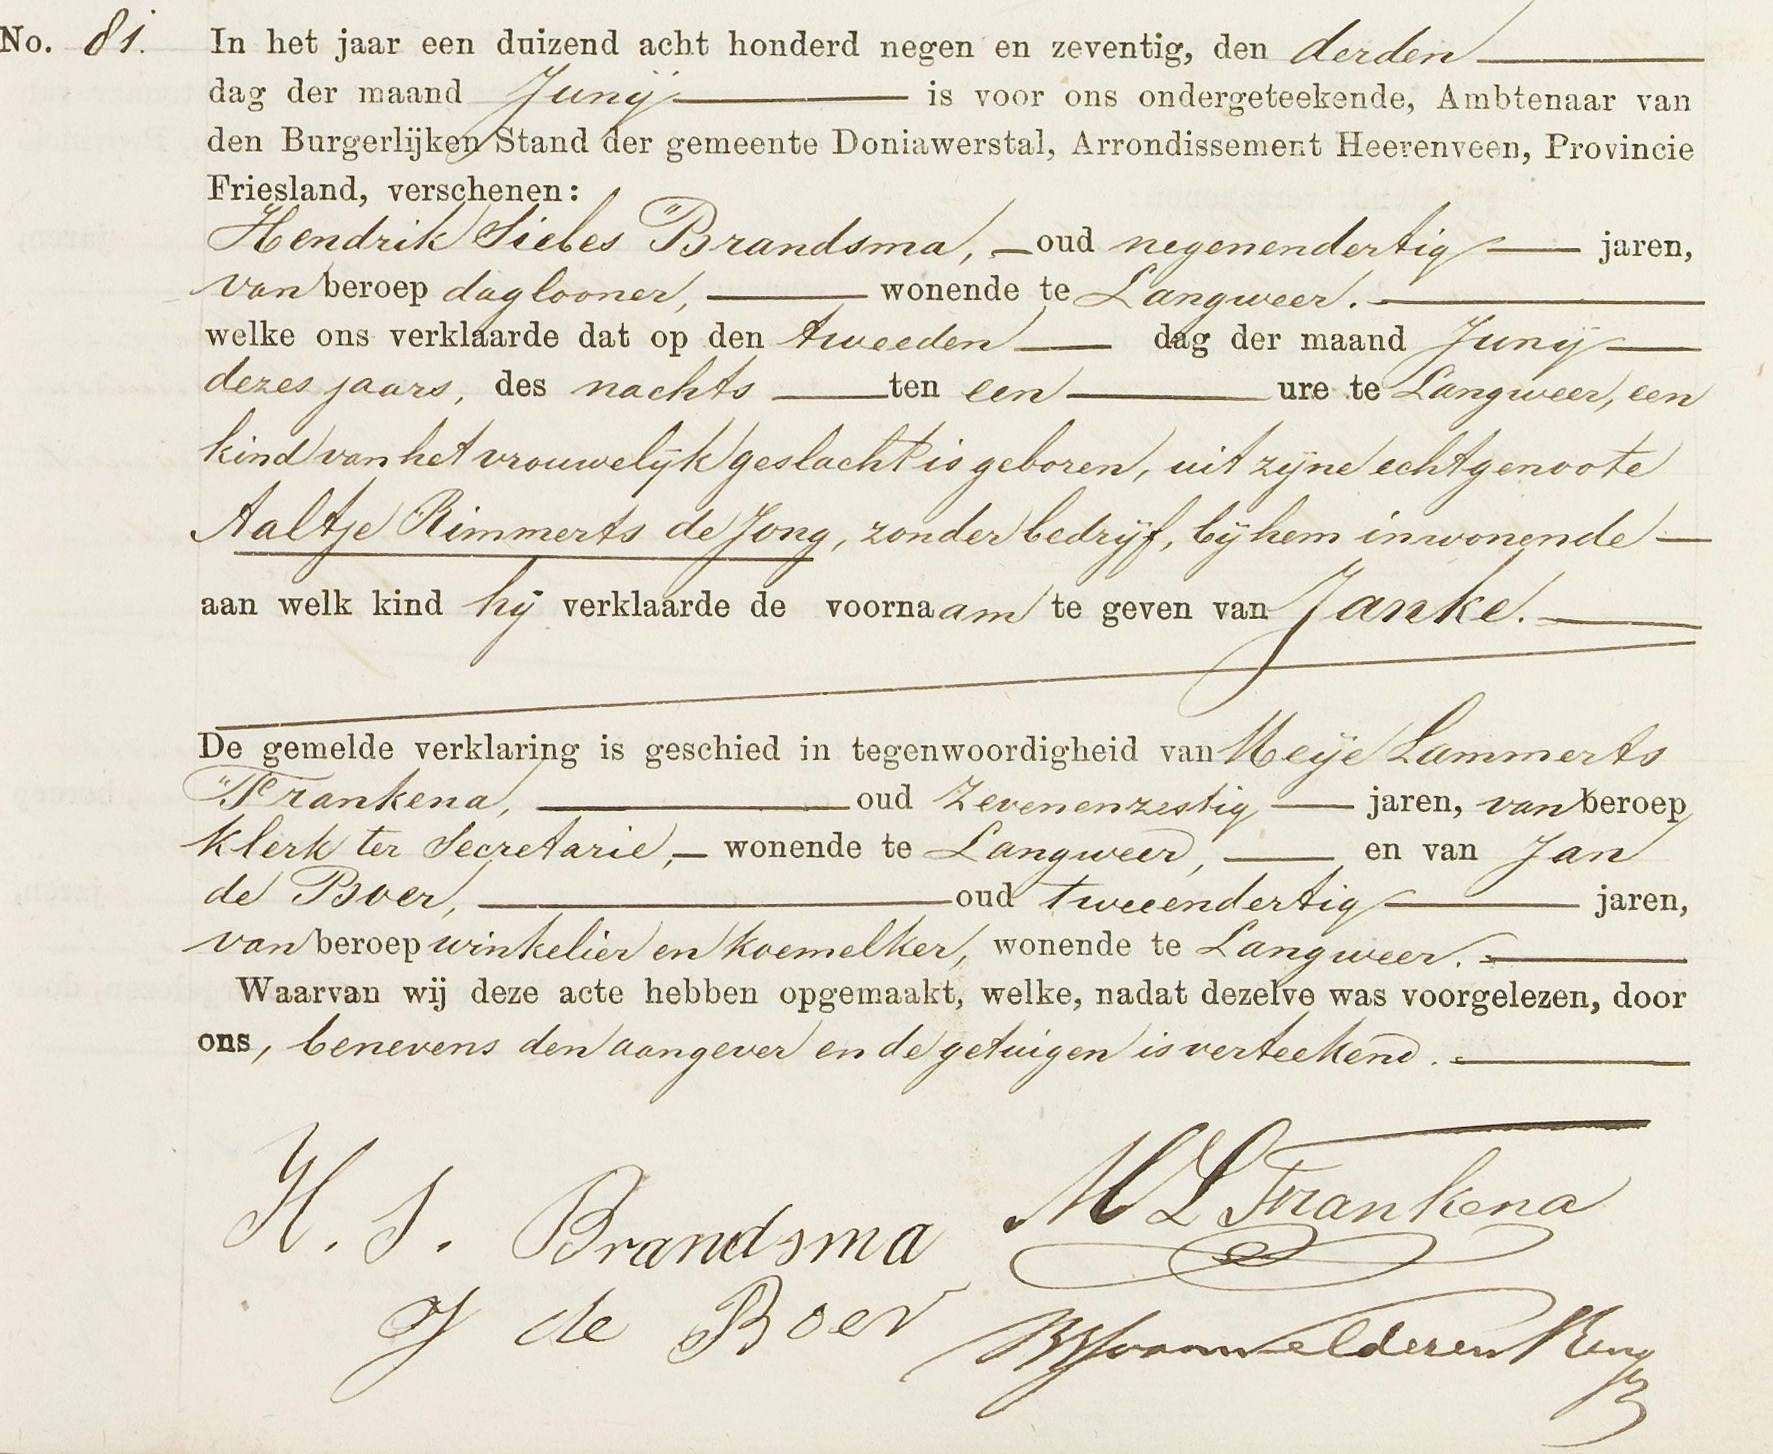 No. 81. In het jaar een duizend acht honderd negen en zeventig, den derden
dag der maand Junij is voor ons ondergeteekende, Ambtenaar van
den Burgerlijken Stand der gemeente Doniawerstal, Arrondissement Heerenveen, Provincie
Friesland, verschenen:
Hendrik Siebes Brandsma, oud negenendertig jaren,
van beroep daglooner, wonende te Langweer.
welke ons verklaarde dat op den tweeden dag der maand Junij
dezes jaars, des nachts ten een ure te Langweer, een
kind van het vrouwelijk geslacht is geboren, uit zijne echtgenoote
Aaltje Rimmerts de Jong, zonder bedrijf, bij hem inwonende
aan welk kind hij verklaarde de voornaam te geven van Janke.
De gemelde verklaring is geschied in tegenwoordigheid van Meije Lammerts
Frankena, oud zevenenzestig jaren, van beroep
klerk ter Secretarie, wonende te Langweer, en van Jan
de Boer, oud tweeendertig jaren,
van beroep winkelier en koemelker, wonende te Langweer.
Waarvan wij deze acte hebben opgemaakt, welke, nadat dezelve was voorgelezen, door
ons, benevens den aangever en de getuigen is verteekend.
H. S. Brandsma
M L Frankena
J de Boer
van Welderen Reng